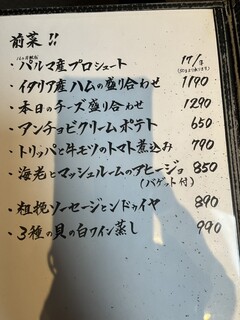 前菜!!
・パルマ産プロシュート 17/g
・イタリア産ハムの盛り合わせ 1190
・本日のチーズ盛り合わせ 1290
・アンチョビクリームポテト 650
・トリッパと牛モツのトマト煮込み 790
・海老とマッシュルームのアヒージョ 850
(バゲット付)
・粗挽ソーセージとンドゥイヤ 890
・3種の貝の白ワイン蒸し 990